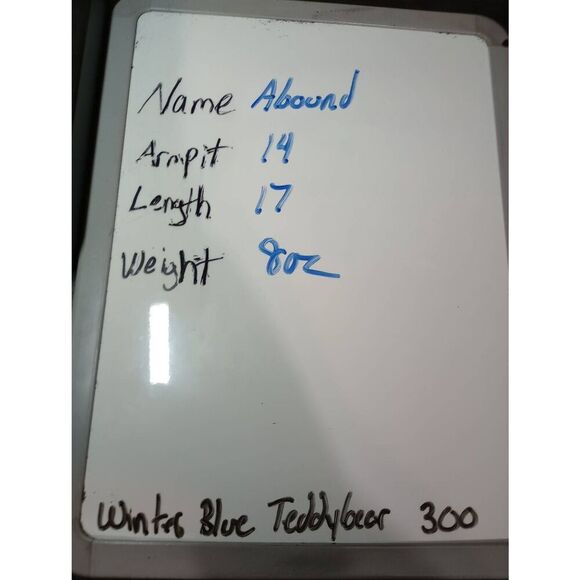 Name Abound
Armpit 14
Length 17
Weight 8oz
Winter Blue Teddybear 300